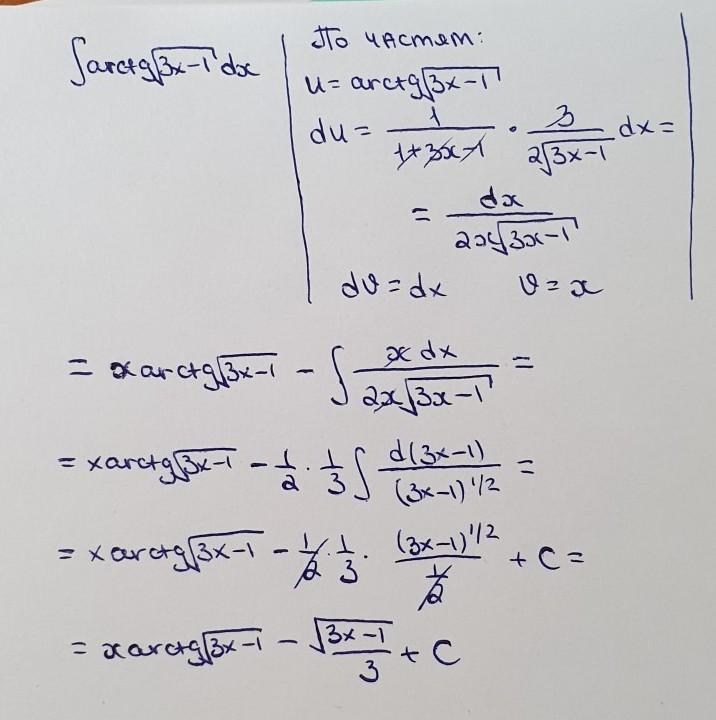 ∫arctg√(3x-1) dx
По частям:
u = arctg√(3x-1)
du = 1/(1+3x-1) · 3/(2√(3x-1)) dx =
= dx/(2x√(3x-1))
dv = dx v = x
= x arctg√(3x-1) - ∫ x dx/(2x√(3x-1)) =
= x arctg√(3x-1) - 1/2 · 1/3 ∫ d(3x-1)/(3x-1)^1/2 =
= x arctg√(3x-1) - 1/2 · 1/3 · (3x-1)^1/2/(1/2) + C =
= x arctg√(3x-1) - √(3x-1)/3 + C